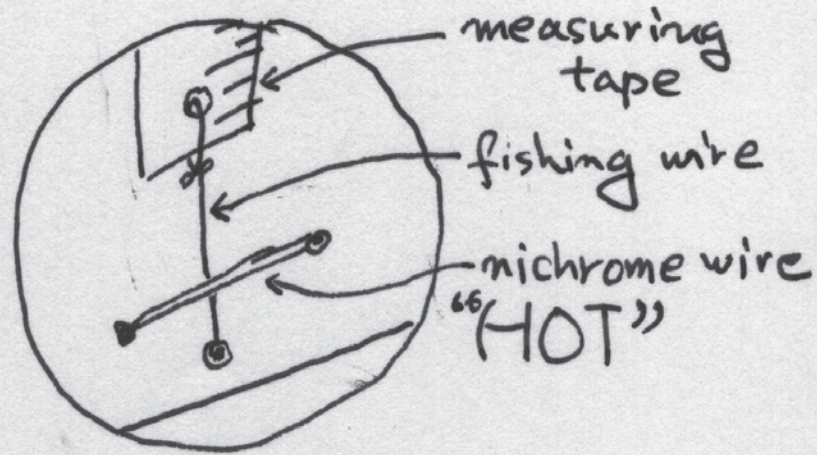 measuring
tape
fishing wire
nichrome wire
"HOT"